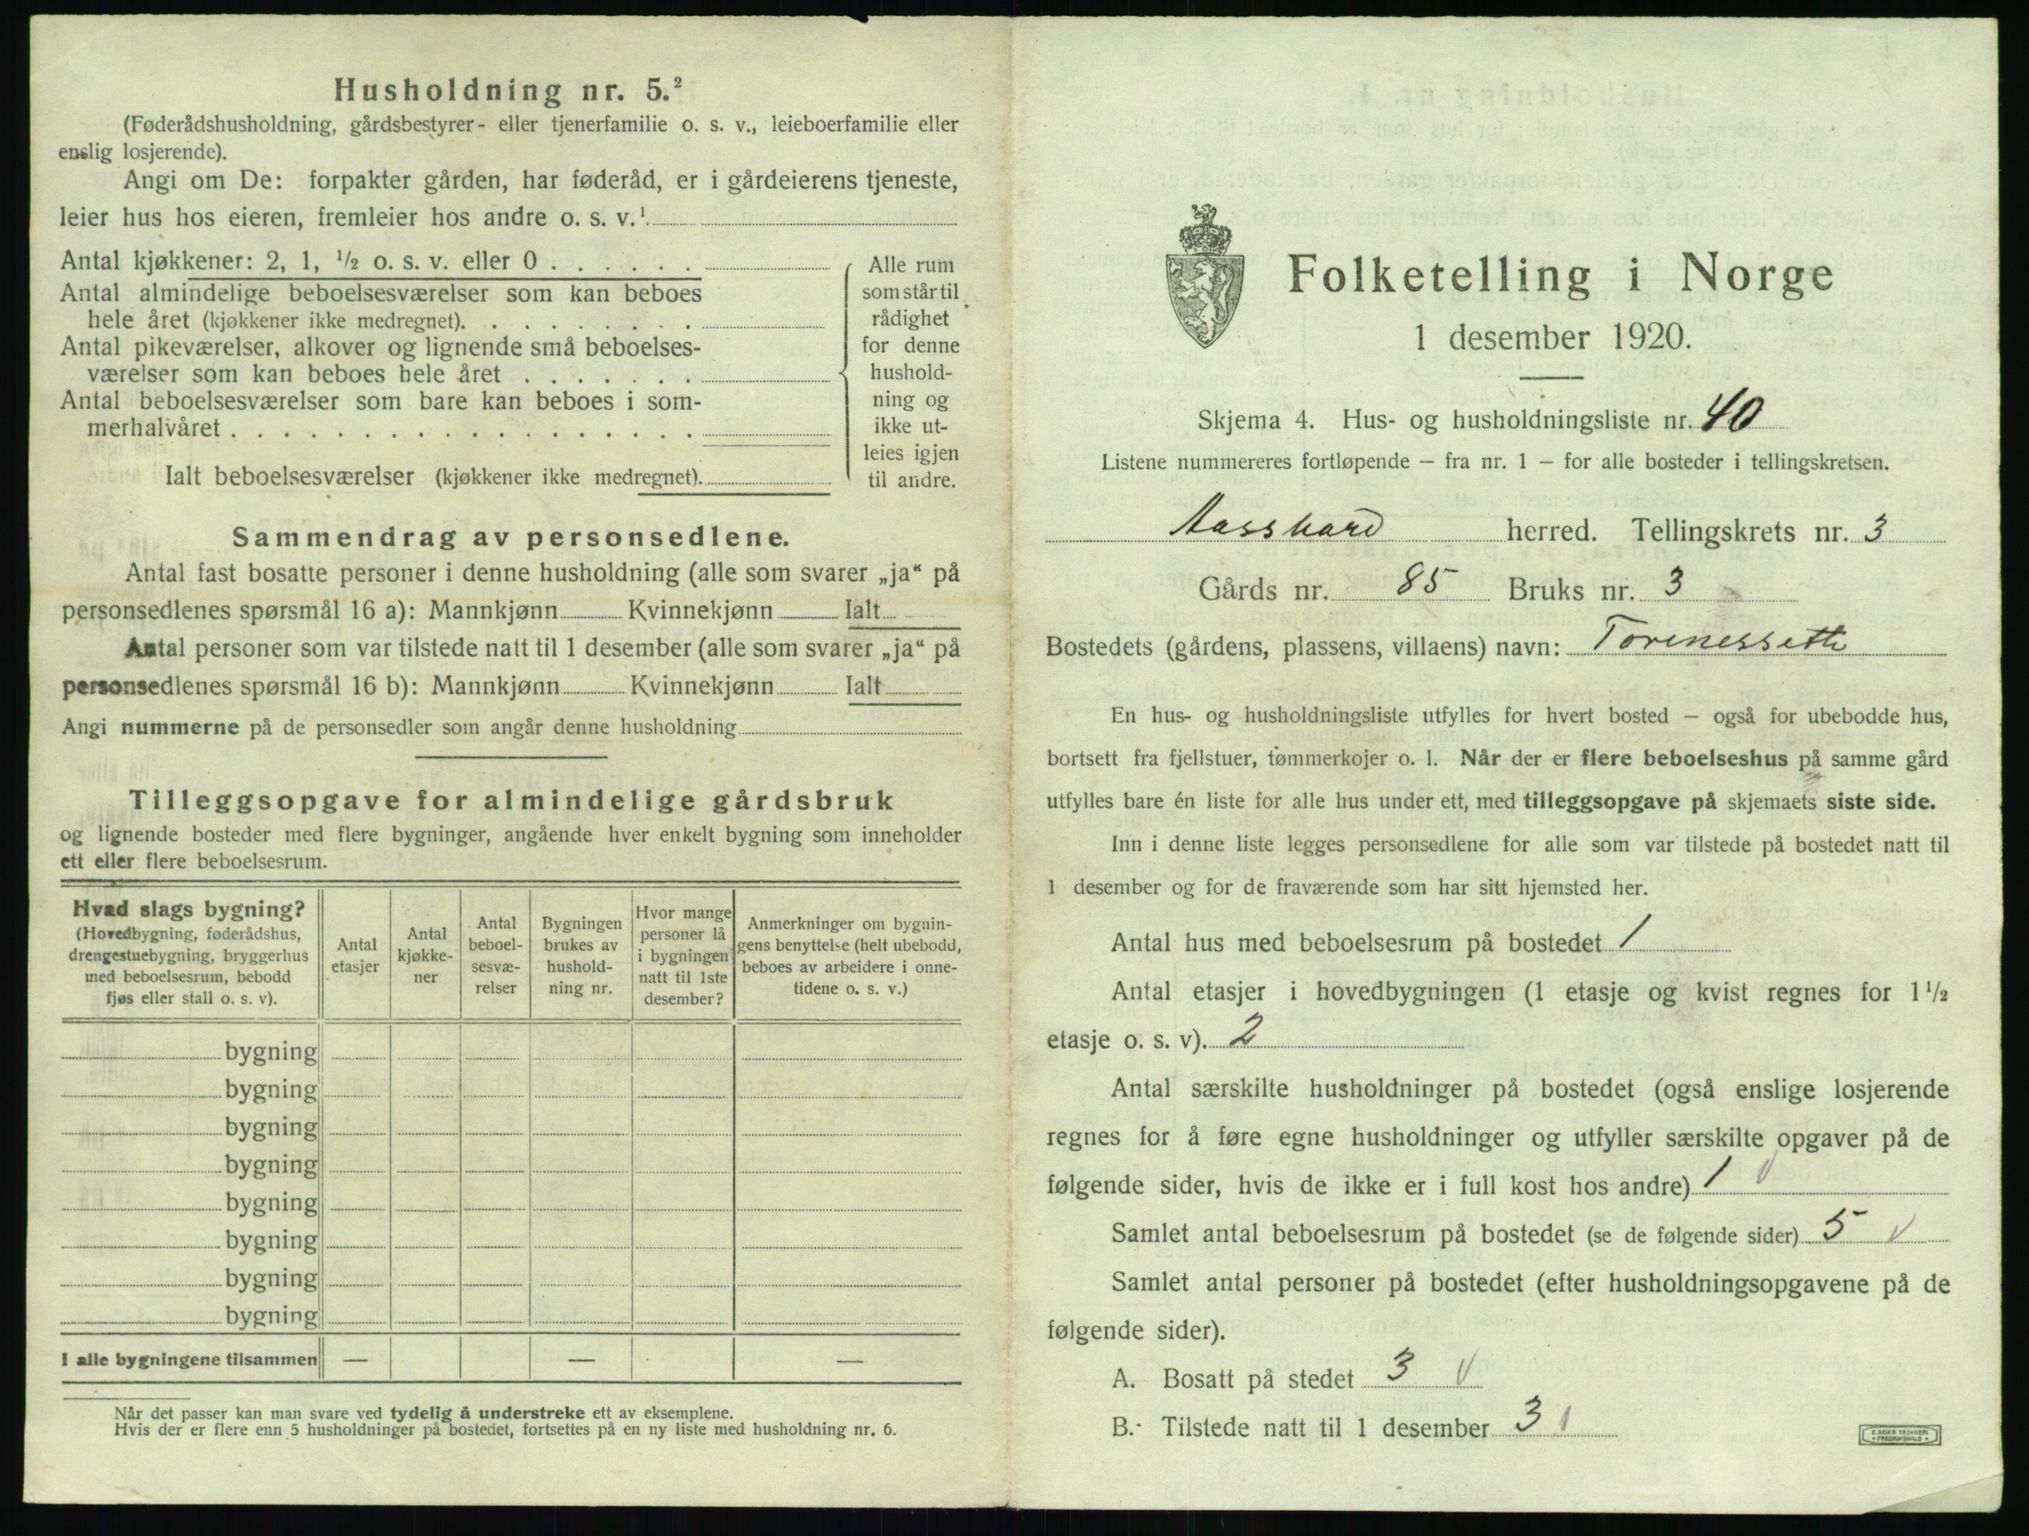 Husholdning nr. 5.²
(Føderådshusholdning, gårdsbestyrer- eller tjenerfamilie o. s. v., leieboerfamilie eller
enslig losjerende).
Angi om De: forpakter gården, har føderåd, er i gårdeierens tjeneste,
leier hus hos eieren, fremleier hos andre o. s. v.¹
Antal kjøkkener: 2, 1, ½ o. s. v. eller 0 . . . . . .
Antal almindelige beboelsesværelser som kan beboes
hele året (kjøkkener ikke medregnet). . . . . . . . .
Antal pikeværelser, alkover og lignende små beboelses-
værelser som kan beboes hele året . . . . . . .
Antal beboelsesværelser som bare kan beboes i som-
merhalvåret . . . . . . . . . . . . . . . . . .
Ialt beboelsesværelser (kjøkkener ikke medregnet).
Alle rum
som står til
rådighet
for denne
hushold-
ning og
ikke ut-
leies igjen
til andre.
Sammendrag av personsedlene.
Antal fast bosatte personer i denne husholdning (alle som svarer „ja“ på
personsedlenes spørsmål 16 a): Mannkjønn Kvinnekjønn Ialt
Antal personer som var tilstede natt til 1 desember (alle som svarer „ja“ på
personsedlenes spørsmål 16 b): Mannkjønn Kvinnekjønn Ialt
Angi nummerne på de personsedler som angår denne husholdning
Tilleggsopgave for almindelige gårdsbruk
og lignende bosteder med flere bygninger, angående hver enkelt bygning som inneholder
ett eller flere beboelsesrum.
Hvad slags bygning?
(Hovedbygning, føderådshus,
drengestuebygning, bryggerhus
med beboelsesrum, bebodd
fjøs eller stall o. s. v).
Antal
etasjer
Antal
kjøkke-
ner
Antal
beboel-
sesvæ-
relser
Bygningen
brukes av
hushold-
ning nr.
Hvor mange
personer lå
i bygningen
natt til 1ste
desember?
Anmerkninger om bygnin-
gens benyttelse (helt ubebodd,
beboes av arbeidere i onne-
tidene o. s. v.)
bygning
bygning
bygning
bygning
bygning
bygning
bygning
bygning
I alle bygningene tilsammen — — —
Når det passer kan man svare ved tydelig å understreke ett av eksemplene.
Hvis der er flere enn 5 husholdninger på bostedet, fortsettes på en ny liste med husholdning nr. 6.
Folketelling i Norge
1 desember 1920.
Skjema 4. Hus- og husholdningsliste nr. 40
Listene nummereres fortløpende – fra nr. 1 – for alle bosteder i tellingskretsen.
herred. Tellingskrets nr. 3
Gårds nr. 85 Bruks nr. 3
Bostedets (gårdens, plassens, villaens) navn:
En hus- og husholdningsliste utfylles for hvert bosted – også for ubebodde hus,
bortsett fra fjellstuer, tømmerkojer o. l. Når der er flere beboelseshus på samme gård
utfylles bare én liste for alle hus under ett, med tilleggsopgave på skjemaets siste side.
Inn i denne liste legges personsedlene for alle som var tilstede på bostedet natt til
1 desember og for de fraværende som har sitt hjemsted her.
Antal hus med beboelsesrum på bostedet 1
Antal etasjer i hovedbygningen (1 etasje og kvist regnes for 1½
etasje o. s. v). 2
Antal særskilte husholdninger på bostedet (også enslige losjerende
regnes for å føre egne husholdninger og utfyller særskilte opgaver på de
følgende sider, hvis de ikke er i full kost hos andre) 1
Samlet antal beboelsesrum på bostedet (se de følgende sider) 5
Samlet antal personer på bostedet (efter husholdningsopgavene på de
følgende sider).
A. Bosatt på stedet 3
B. Tilstede natt til 1 desember 3